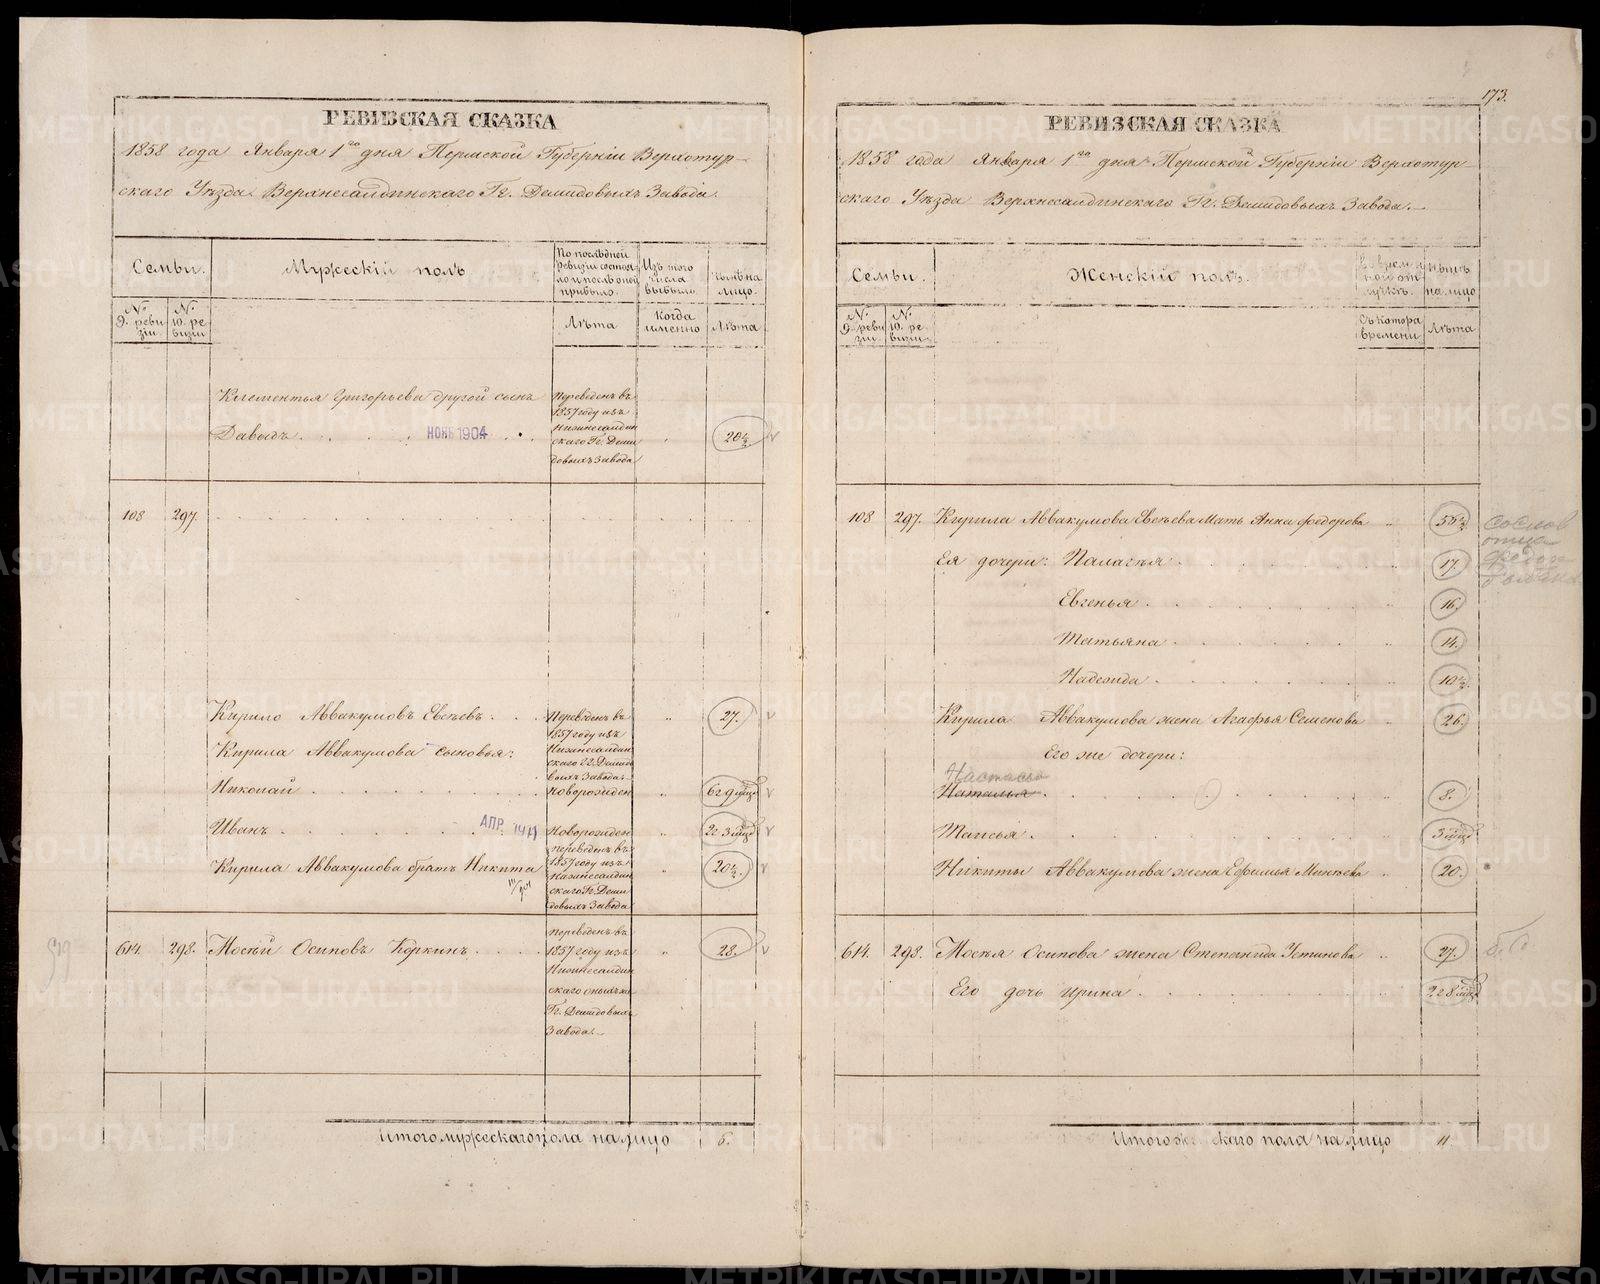 РЕВИЗСКАЯ СКАЗКА
1858 года Января 1го дня Пермской Губерніи Верхотур-
скаго Уѣзда Верхнесалдинскаго Гг. Демидовыхъ Завода.
Семьи.
Мужескій полъ
По послѣдней ревизіи состояло и послѣ оной прибыло.
Изъ того числа выбыло
Нынѣ на лицо.
№ 9. ревизіи
№ 10. ревизіи
Лѣта
Когда именно
Лѣта
Клементья Григорьева другой сынъ
Давыдъ
НОЯБ 1904
Переведенъ въ
1857 году изъ
Нижнесалдин
скаго Гг. Деми
довыхъ Завода
20½
108 297.
Кирило Аввакумовъ Евсѣевъ.
Переведенъ въ
1857 году изъ
Нижнесалдин
скаго Гг. Демидо
выхъ Завода.
27.
Кирила Аввакумова сыновья:
Николай
Новорожден
6 г 9 мѣц
Иванъ
АПР.
Новорожден
2 г 3 мѣц
Кирила Аввакумова братъ Никита
переведенъ въ
1857 году изъ
Нижнесалдин
скаго Гг. Деми
довыхъ Завода
20½.
614. 298. Мосѣй Осиповъ Коркинъ
переведенъ въ
1857 году изъ
Нижнесалдин
скаго оныхъ же
Гг. Демидовыхъ
Завода.
28.
Итого мужескаго пола на лицо 6.
173.
РЕВИЗСКАЯ СКАЗКА
1858 года Января 1го дня Пермской Губерніи Верхотур
скаго Уѣзда Верхнесалдинскаго Гг. Демидовыхъ Завода.
Семьи.
Женскій полъ.
Во временной отлучкѣ.
Нынѣ на лицо
№ 9. ревизіи
№ 10. ревизіи
Съ котора времени
Лѣта
108 297. Кирила Аввакумова Евсѣева Мать Анна Федорова 55½
Ея дочери: Палагѣя 17.
Евгенья 16.
Татьяна 14.
Надежда 10½.
Кирила Аввакумова жена Агафья Семенова 26.
Его же дочери:
Настасья
Наталья 8.
Таисья 3 мѣц
Никиты Аввакумова жена Ефимья Минѣева 20.
614. 298. Мосѣя Осипова жена Степанида Устинова 27.
Его дочь Ирина 2 г 8 мѣц
Итого женскаго пола на лицо 11.
METRIKI.GASO-URAL.RU